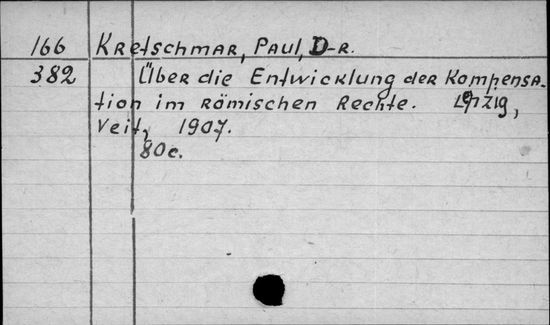 166 Kretschmar, Paul, D-r.
382 Über die Entwicklung der Kompensa-
tion im römischen Rechte. Leipzig,
Veit, 1907.
80c.